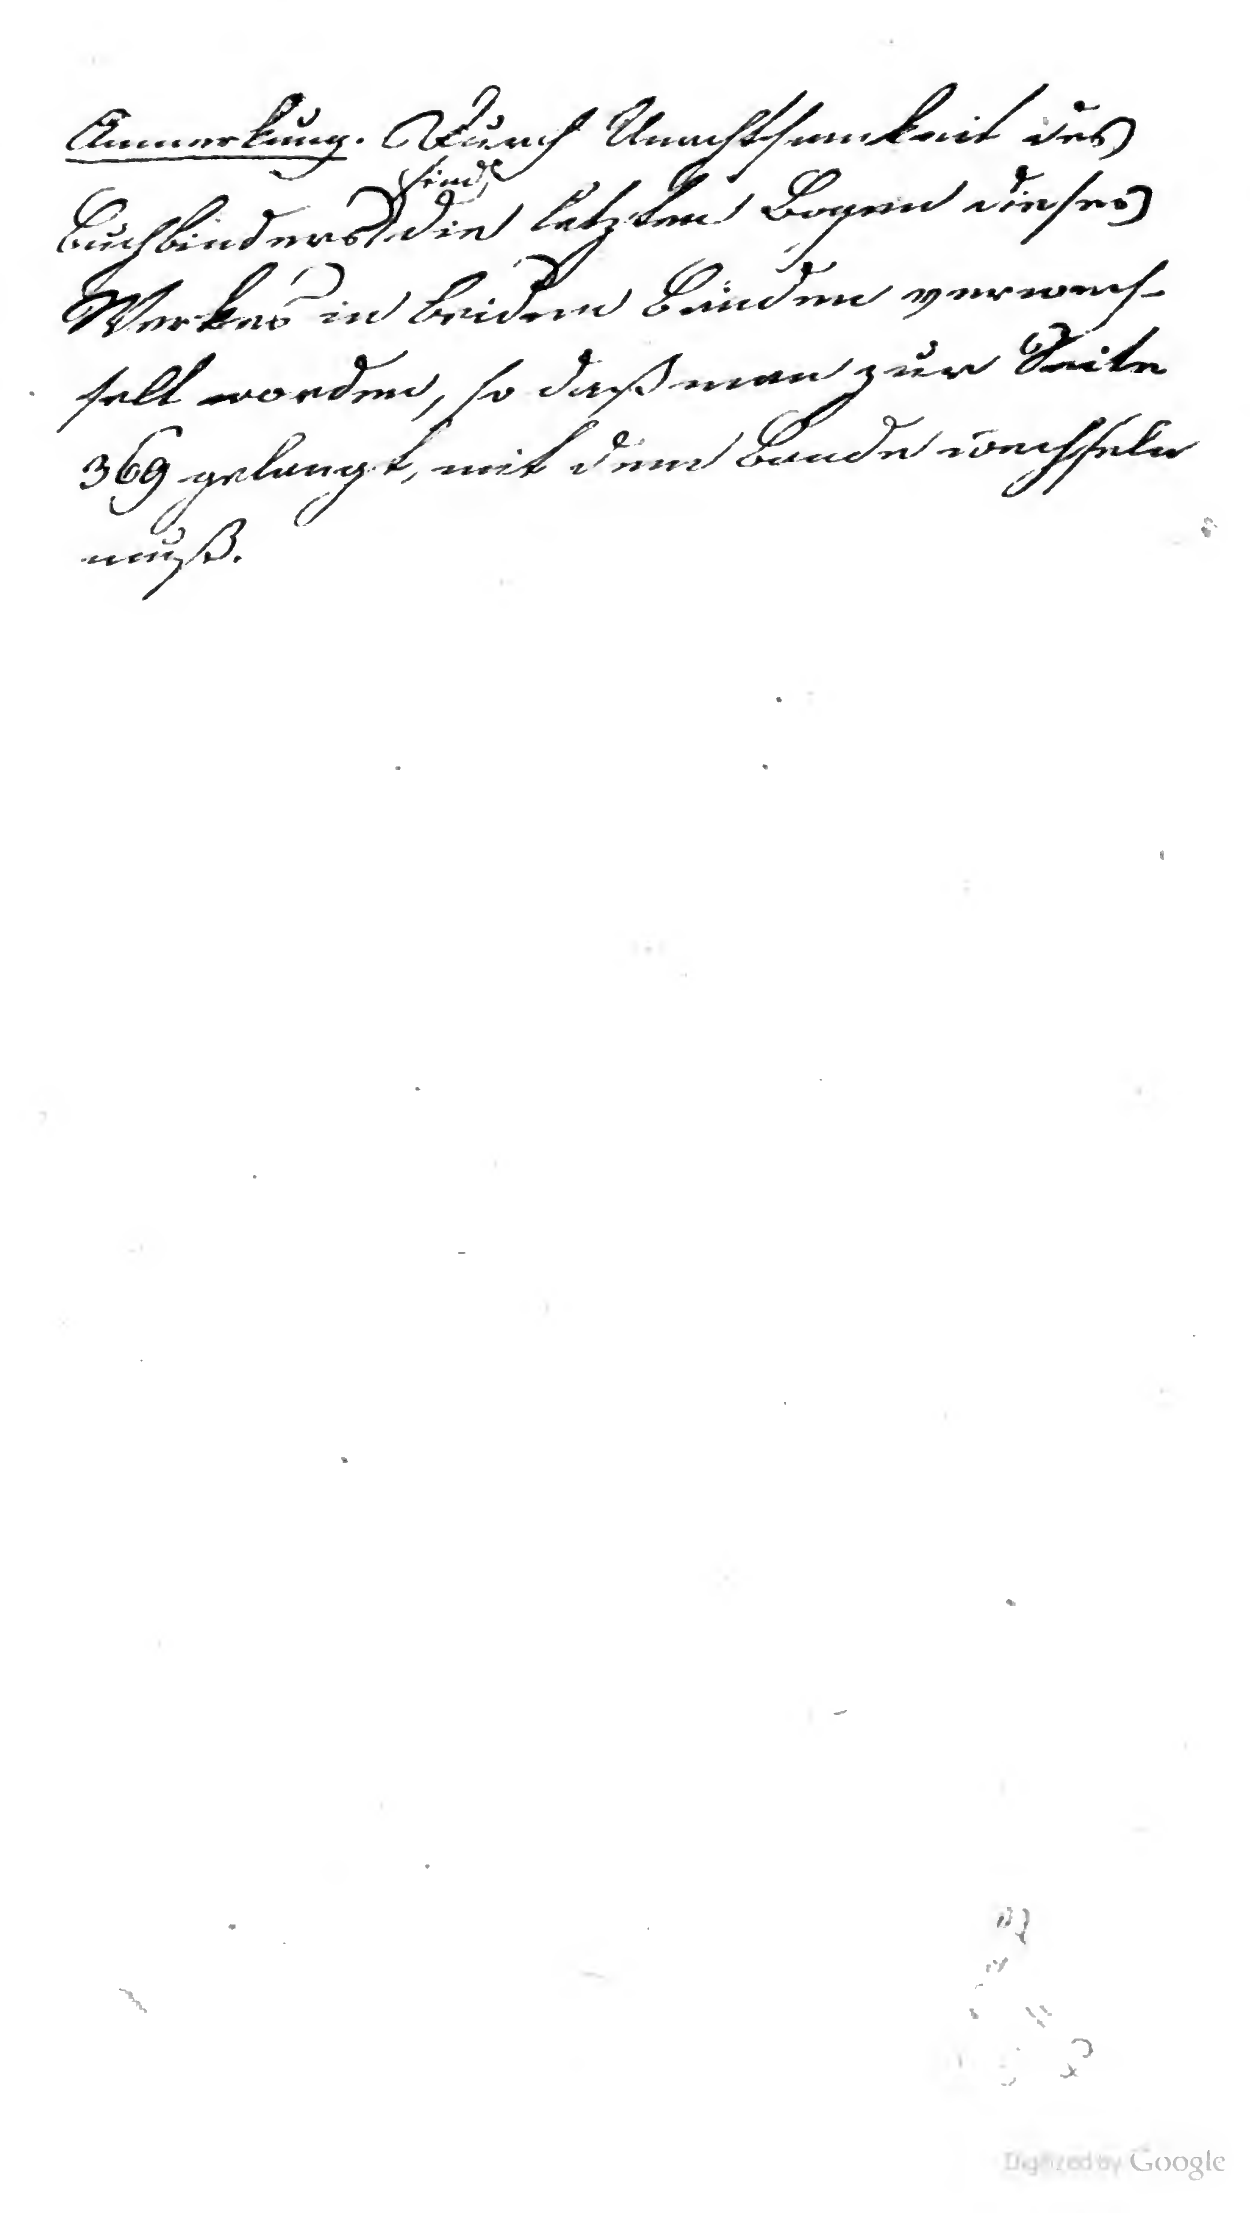 Anmerkung. Durch Unachtsamkeit des
sind
Buchbinders die letzten Bogen dieses
Werkes in beiden Bänden verwech-
selt worden, so daß man zur Seite
369 gelangt, mit dem Bande wechseln
muß.
Digitized by Google